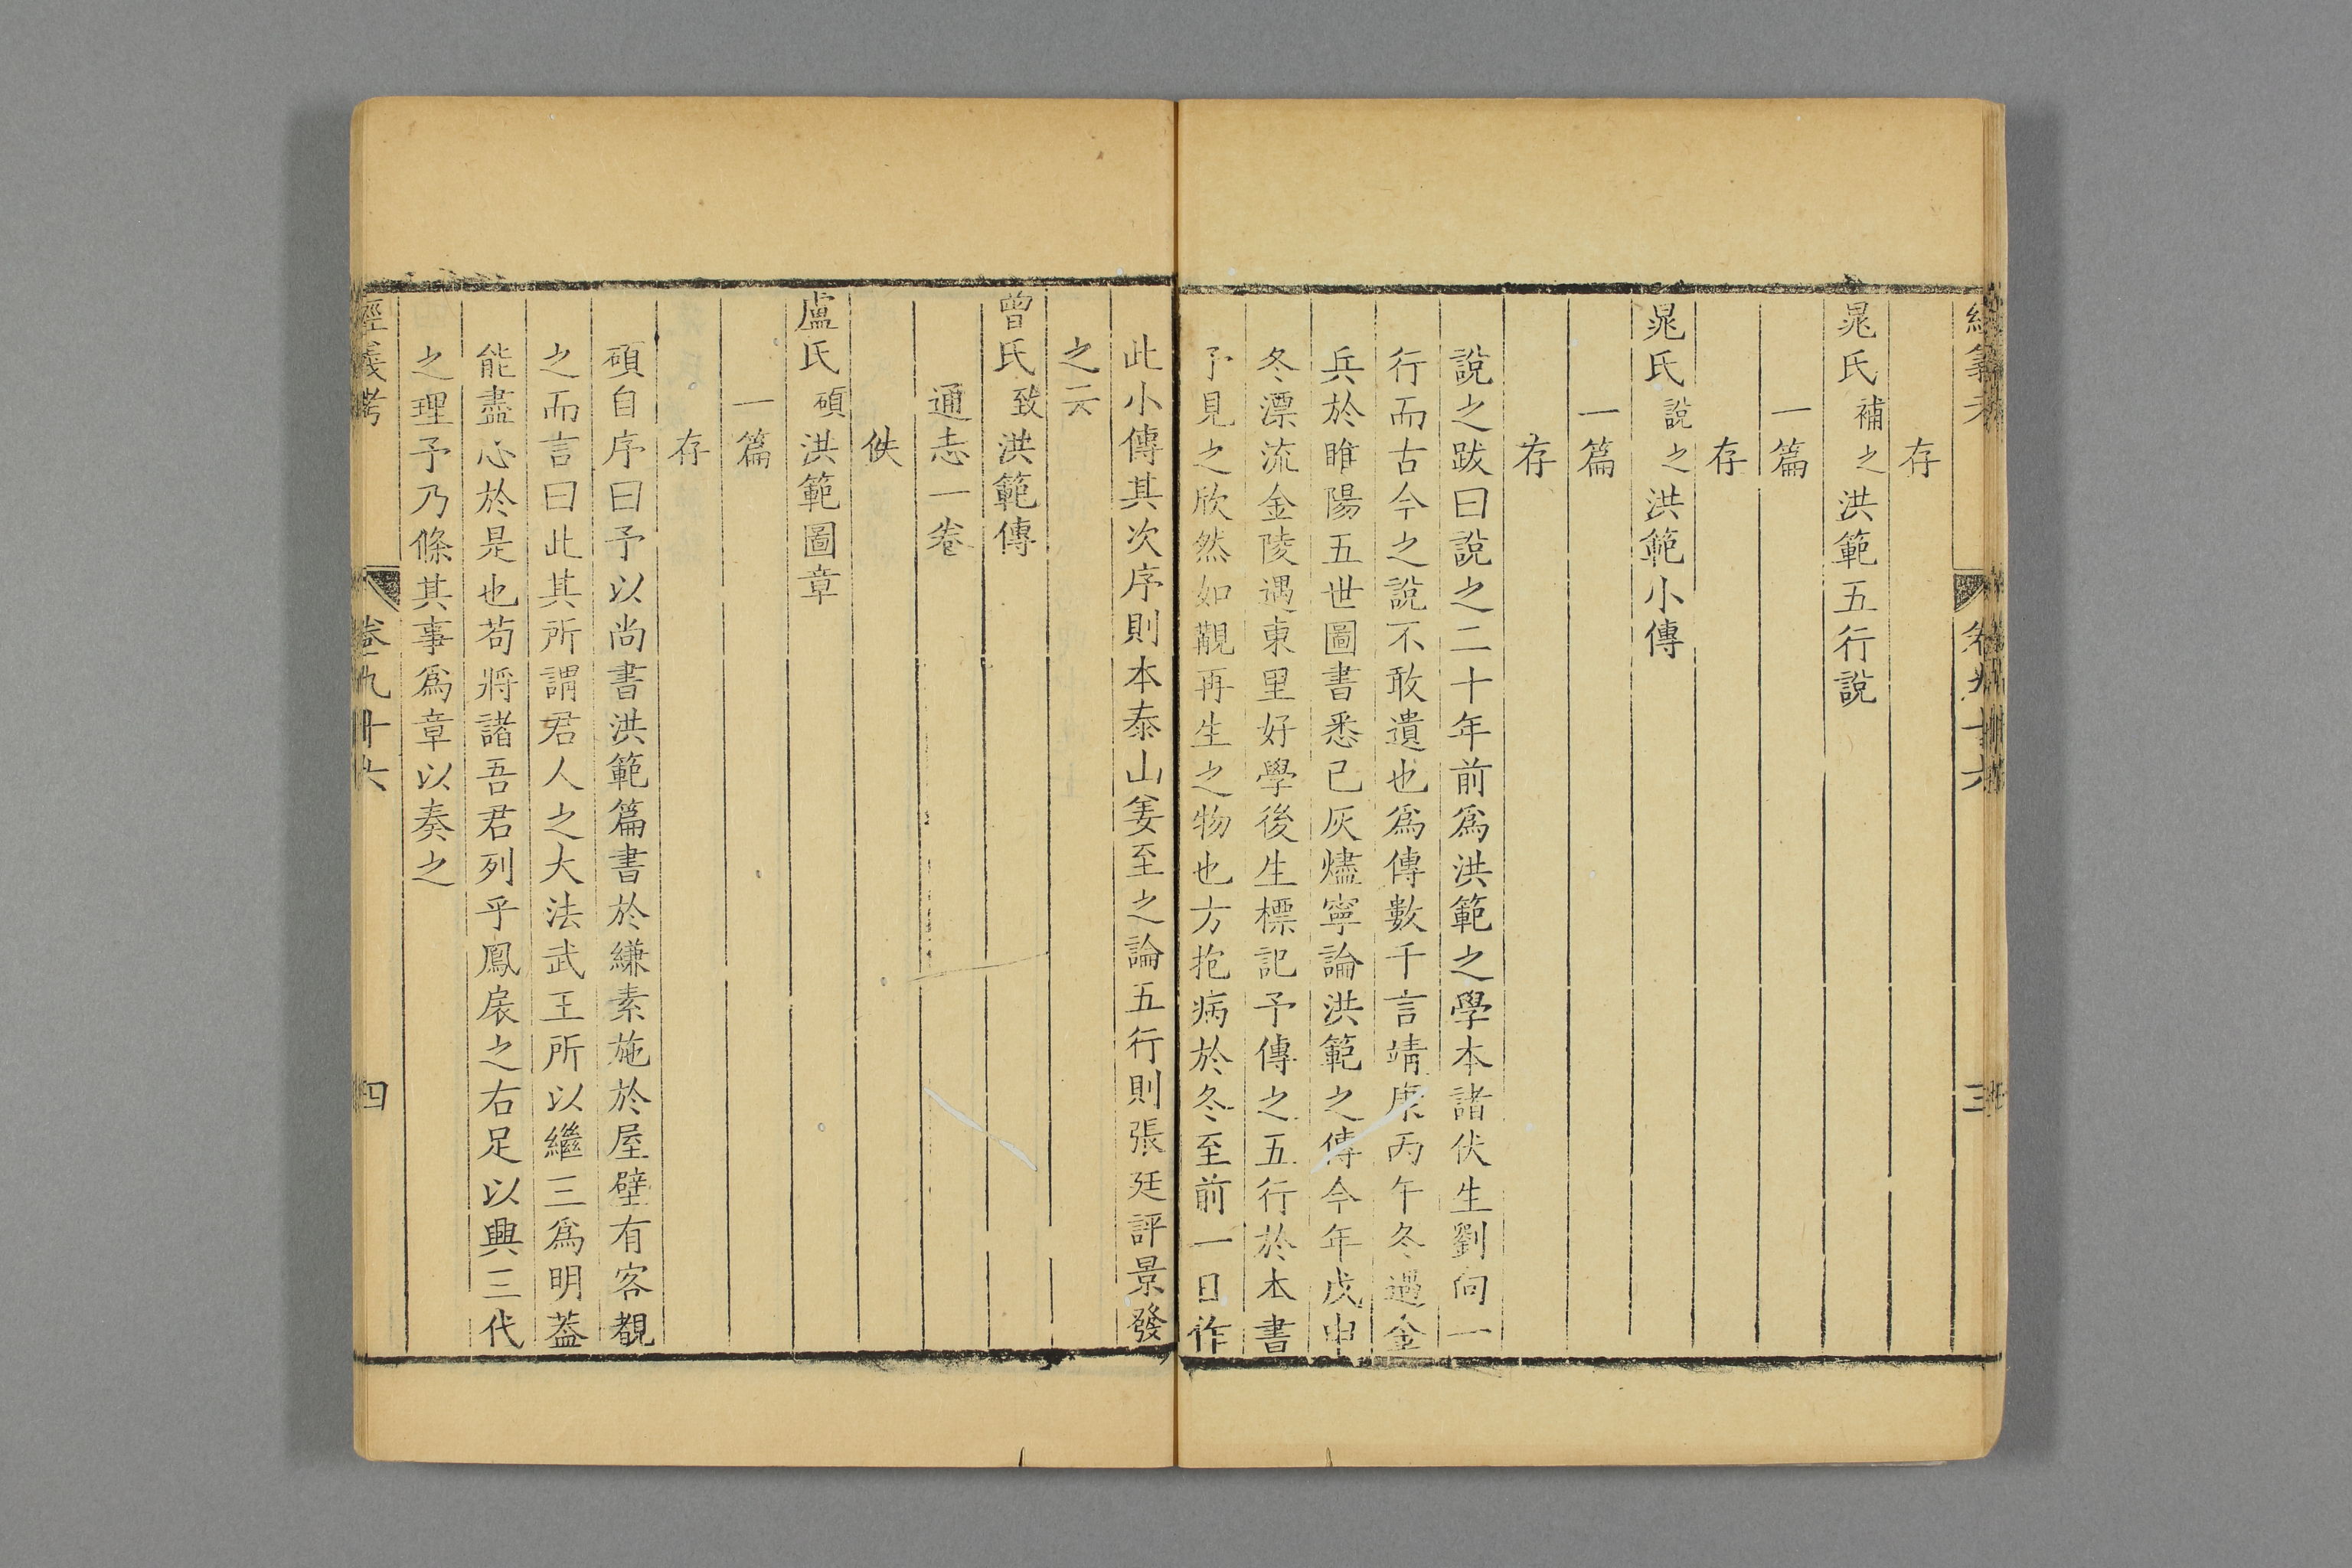 存
晁氏補之洪範五行說
一篇
存
晁氏說之洪範小傳
一篇
存
說之跋曰說之二十年前爲洪範之學本諸伏生劉向一
行而古今之說不敢遺也爲傳數千言靖康丙午冬遇金
兵於睢陽五世圖書悉已灰燼寧論洪範之傳今年戊申
冬漂流金陵遇東里好學後生標記予傳之五行於本書
予見之欣然如覩再生之物也方抱病於冬至前一日作
此小傳其次序則本泰山姜至之論五行則張廷評景發
之云
曾氏致洪範傳
通志一卷
佚
盧氏碩洪範圖章
一篇
存
碩自序曰予以尚書洪範篇書於縑素施於屋壁有客覩
之而言曰此其所謂君人之大法武王所以繼三爲明蓋
能盡心於是也苟將諸吾君列乎鳳扆之右足以興三代
之理予乃條其事爲章以奏之
經義考 卷九十六 四